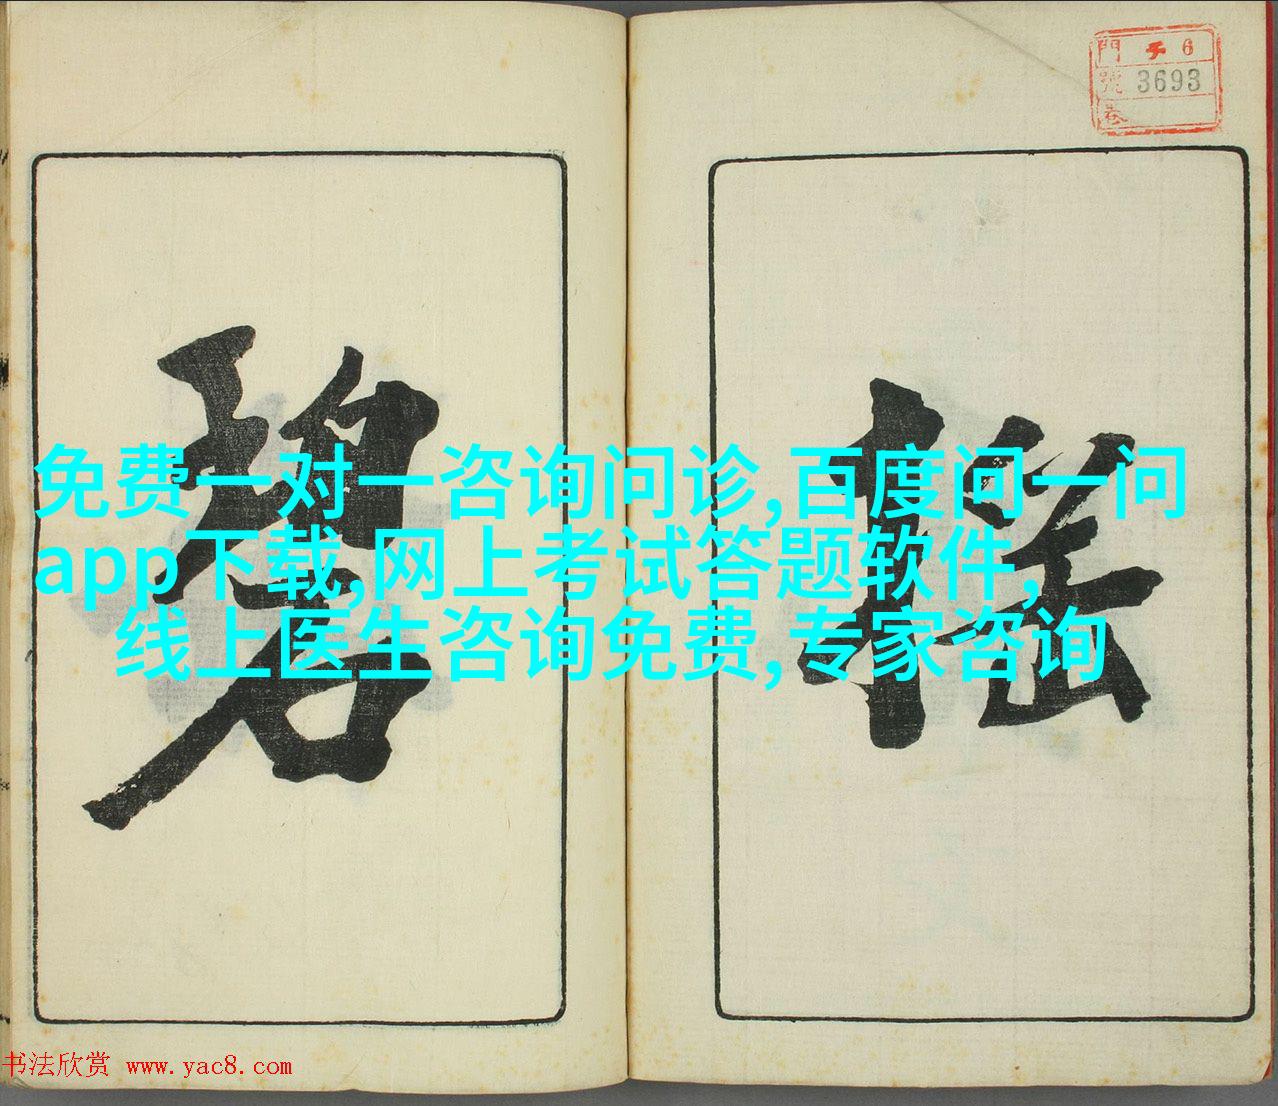 門 チ 6
號 3693
巻
搖
碧
免费一对一咨询问诊,百度问一问
app下载,网上考试答题软件,
线上医生咨询免费,专家咨询
书法欣赏 www.yac8.com